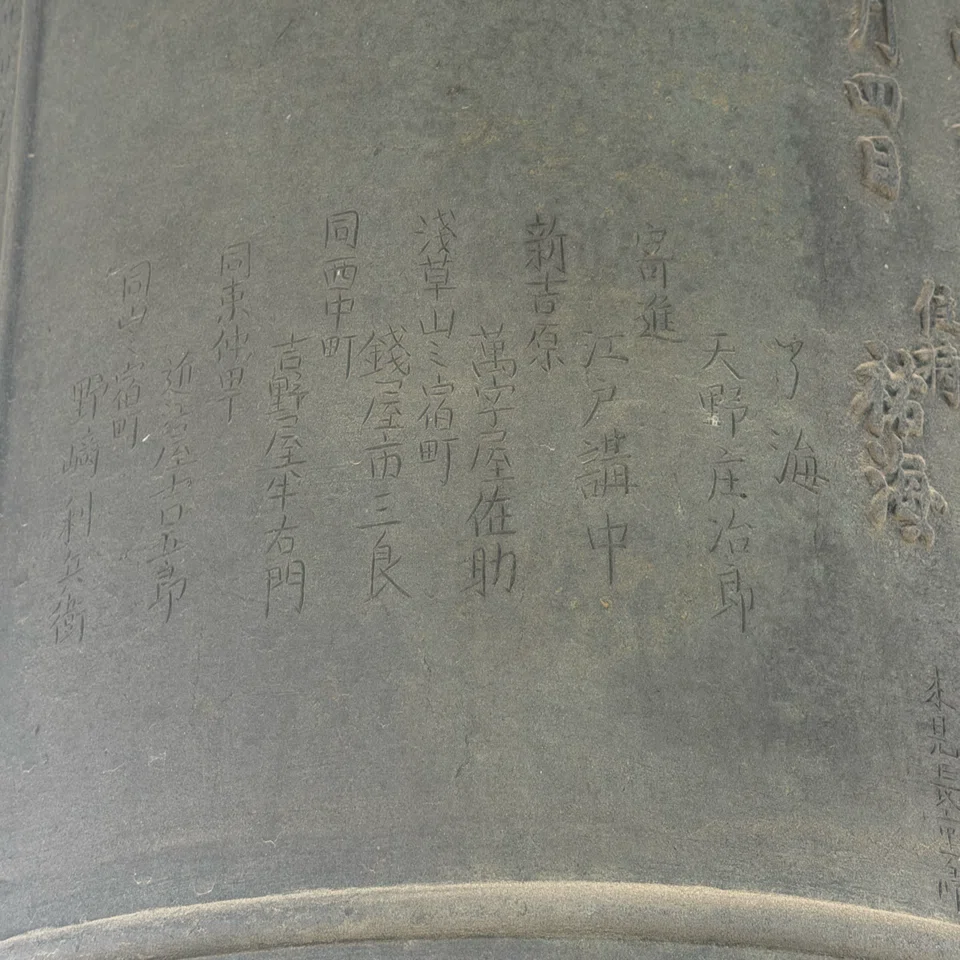 月四日
海
了海
天野庄治郎
寄進
江戸講中
新吉原
萬字屋佐助
淺草山之宿町
錢屋市三良
同西中町
吉野屋半右門
同東仲甼
近江屋吉五郎
同山之宿町
野崎利兵衛